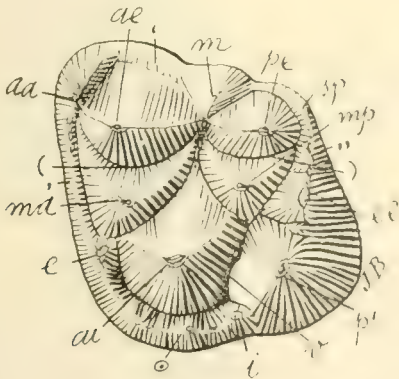 ae
m
pe
sp
aa
mp
(
"
)
md
e
SB
au
p'
i
v